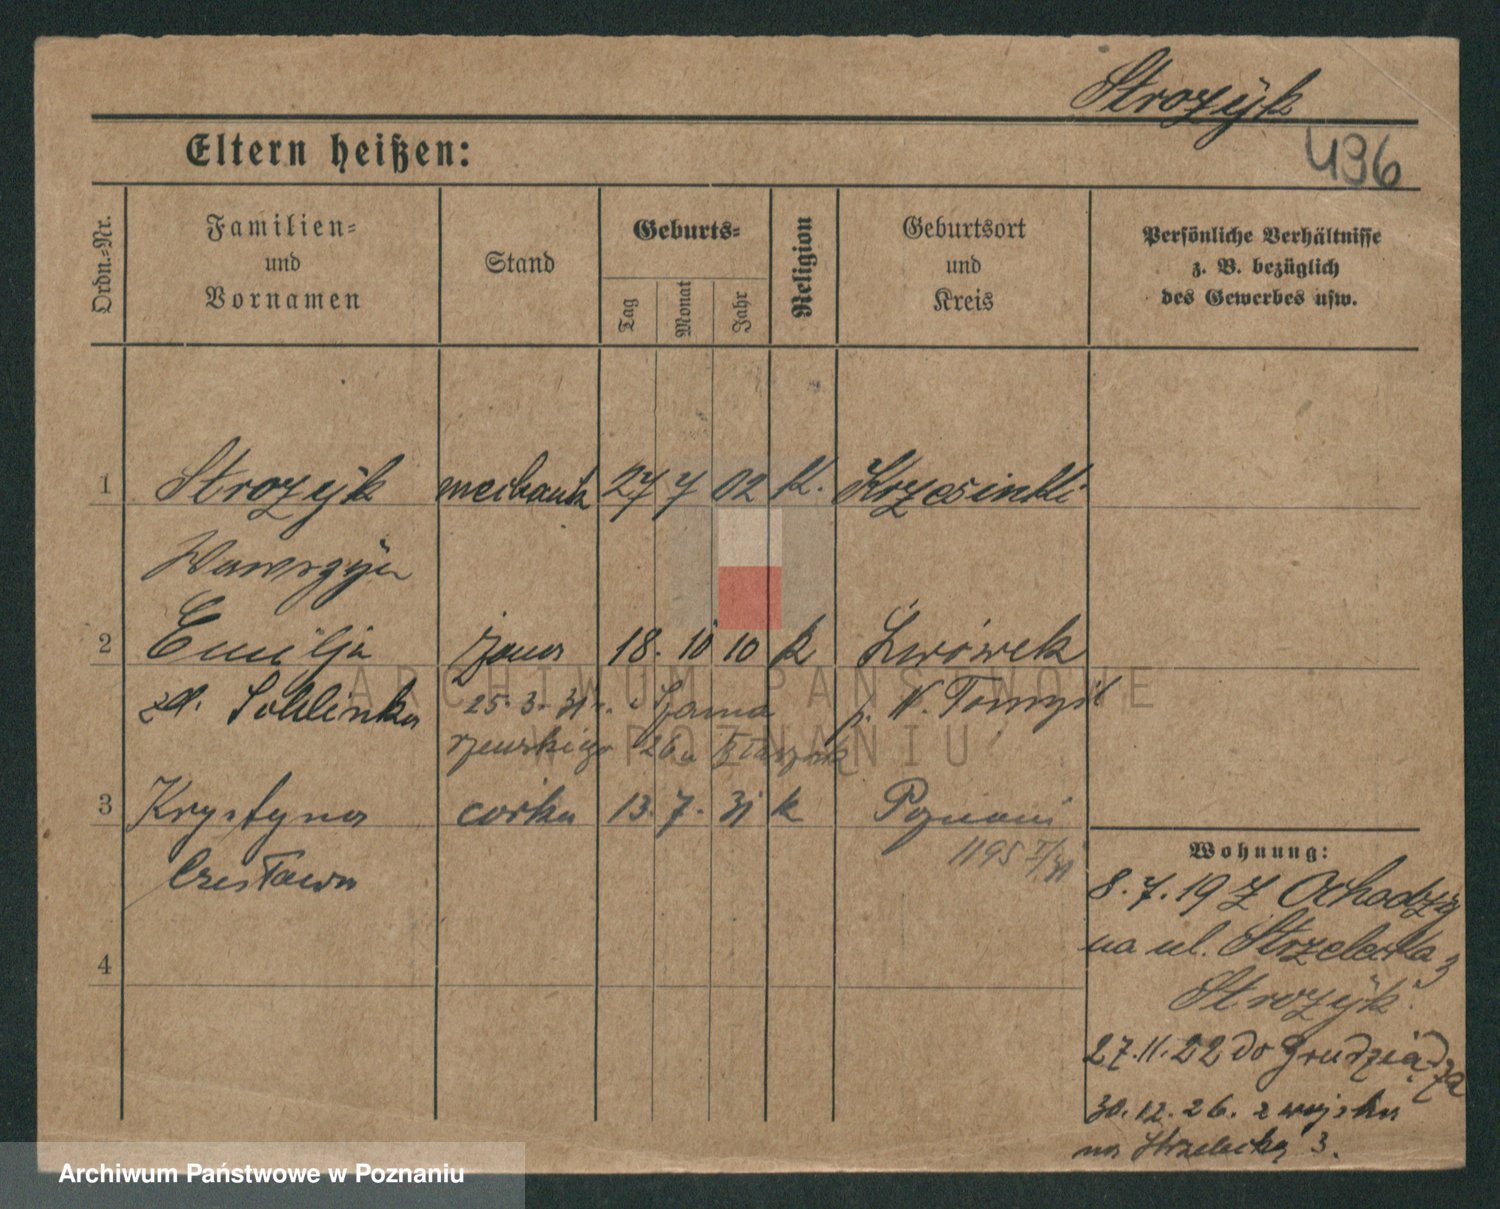 Strozÿk
496
Eltern heißen:
Ordn.=Nr.
Familien=
und
Vornamen
Stand
Geburts=
Tag
Monat
Jahr
Religion
Geburtsort
und
Kreis
Persönliche Verhältnisse
z. B. bezüglich
des Gewerbes usw.
1 Strozÿk mechanik 27 7 02 K. Krzesinki
Wawrzÿn
2 Emilja żona 18. 10 10 k Lwówek
zd. 25.3.31 r. p. N. Tomyśl
26a
3 Krystyna córka 13. 7. 31 k Poznań
1195 I/31
Czesława
4
Wohnung:
8.7.19 Z Ochodzy
na ul. Strzelecka 3
Strozÿk.
27.11.22 do Grudziądza
30.12.26. z wojska
na Strzelecką 3.
ARCHIWUM PAŃSTWOWE
W POZNANIU
Archiwum Państwowe w Poznaniu